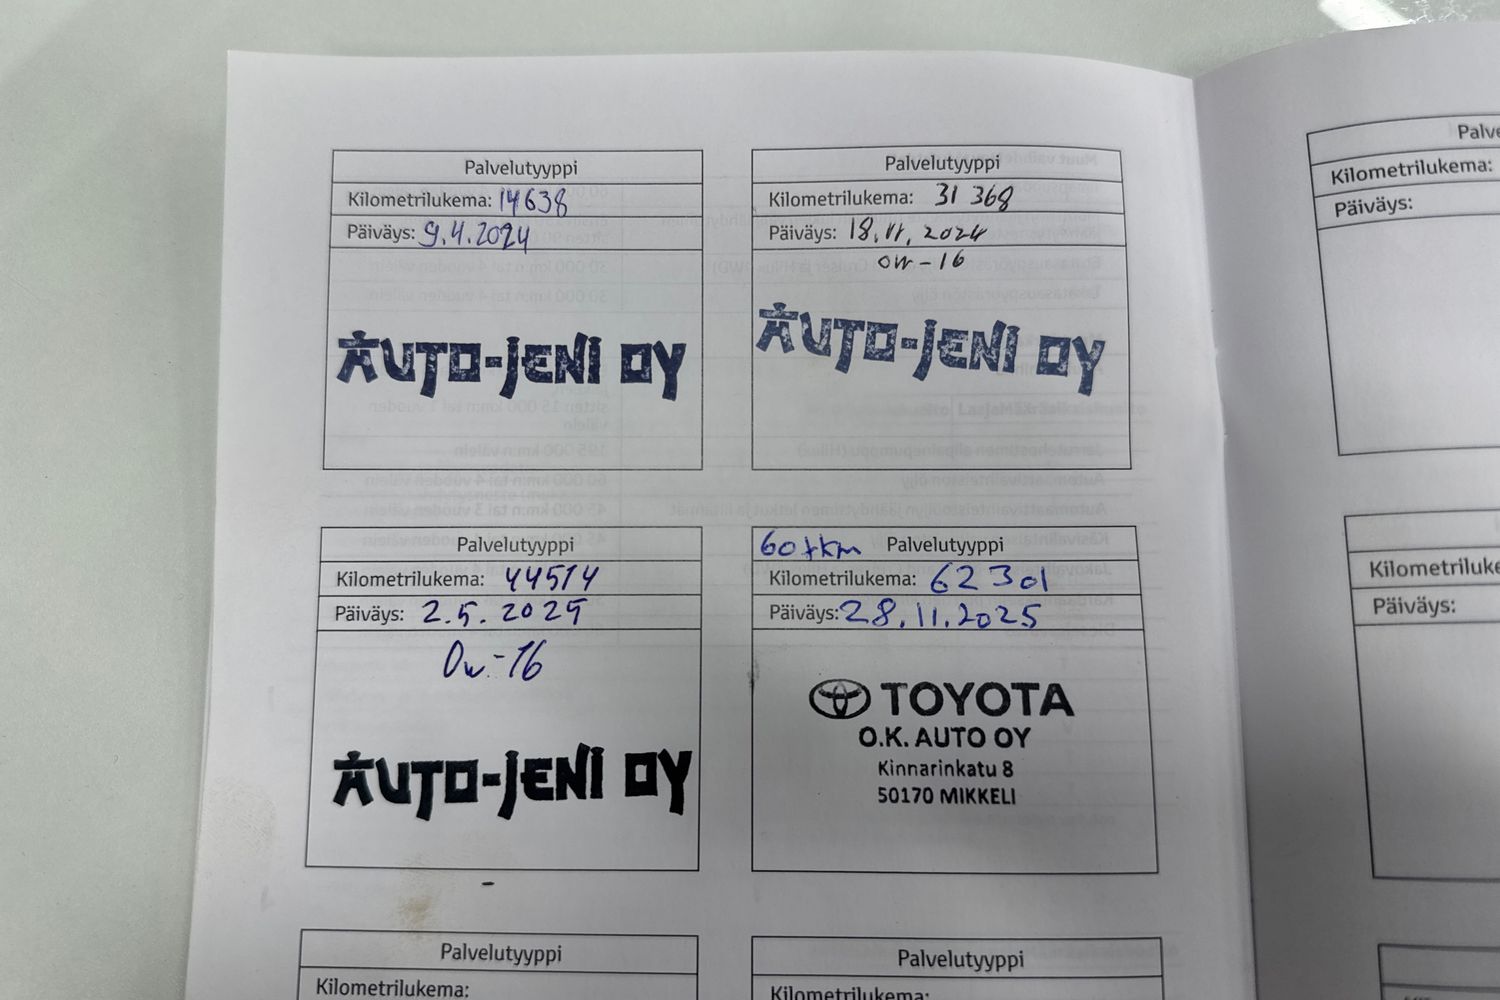 Palvelutyyppi
Kilometrilukema: 14638
Päiväys: 9.4.2024
AUTO-JENI OY
Palvelutyyppi
Kilometrilukema: 31 368
Päiväys: 18.11.2024
OW-16
AUTO-JENI OY
Palvelutyyppi
Kilometrilukema: 44514
Päiväys: 2.5.2025
OW-16
AUTO-JENI OY
60tkm Palvelutyyppi
Kilometrilukema: 62301
Päiväys: 28.11.2025
TOYOTA
O.K. AUTO OY
Kinnarinkatu 8
50170 MIKKELI
Palvelutyyppi
Kilometrilukema:
Palvelutyyppi
Kilometrilukema:
Palve
Kilometrilukema:
Päiväys:
Kilometriluke
Päiväys: